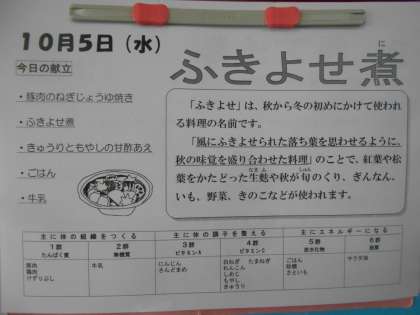 10月5日（水）
ふきよせ煮
に
今日の献立
・豚肉のねぎじょうゆ焼き
・ふきよせ煮
・きゅうりともやしの甘酢あえ
・ごはん
・牛乳
「ふきよせ」は、秋から冬の初めにかけて使われ
る料理の名前です。
「風にふきよせられた落ち葉を思わせるように、
秋の味覚を盛り合わせた料理」のことで、紅葉や松
葉をかたどった生麩や秋が旬のくり、ぎんなん、
なまふ しゅん
いも、野菜、きのこなどが使われます。
主に体の組織をつくる 主に体の調子を整える 主にエネルギーになる
1群 2群 3群 4群 5群 6群
たんぱく質 無機質 ビタミンA ビタミンC 炭水化物 脂質
豚肉 牛乳 にんじん 白ねぎ たまねぎ ごはん サラダ油
鶏肉 さんどまめ れんこん 砂糖
けずりぶし しめじ さといも
もやし
きゅうり